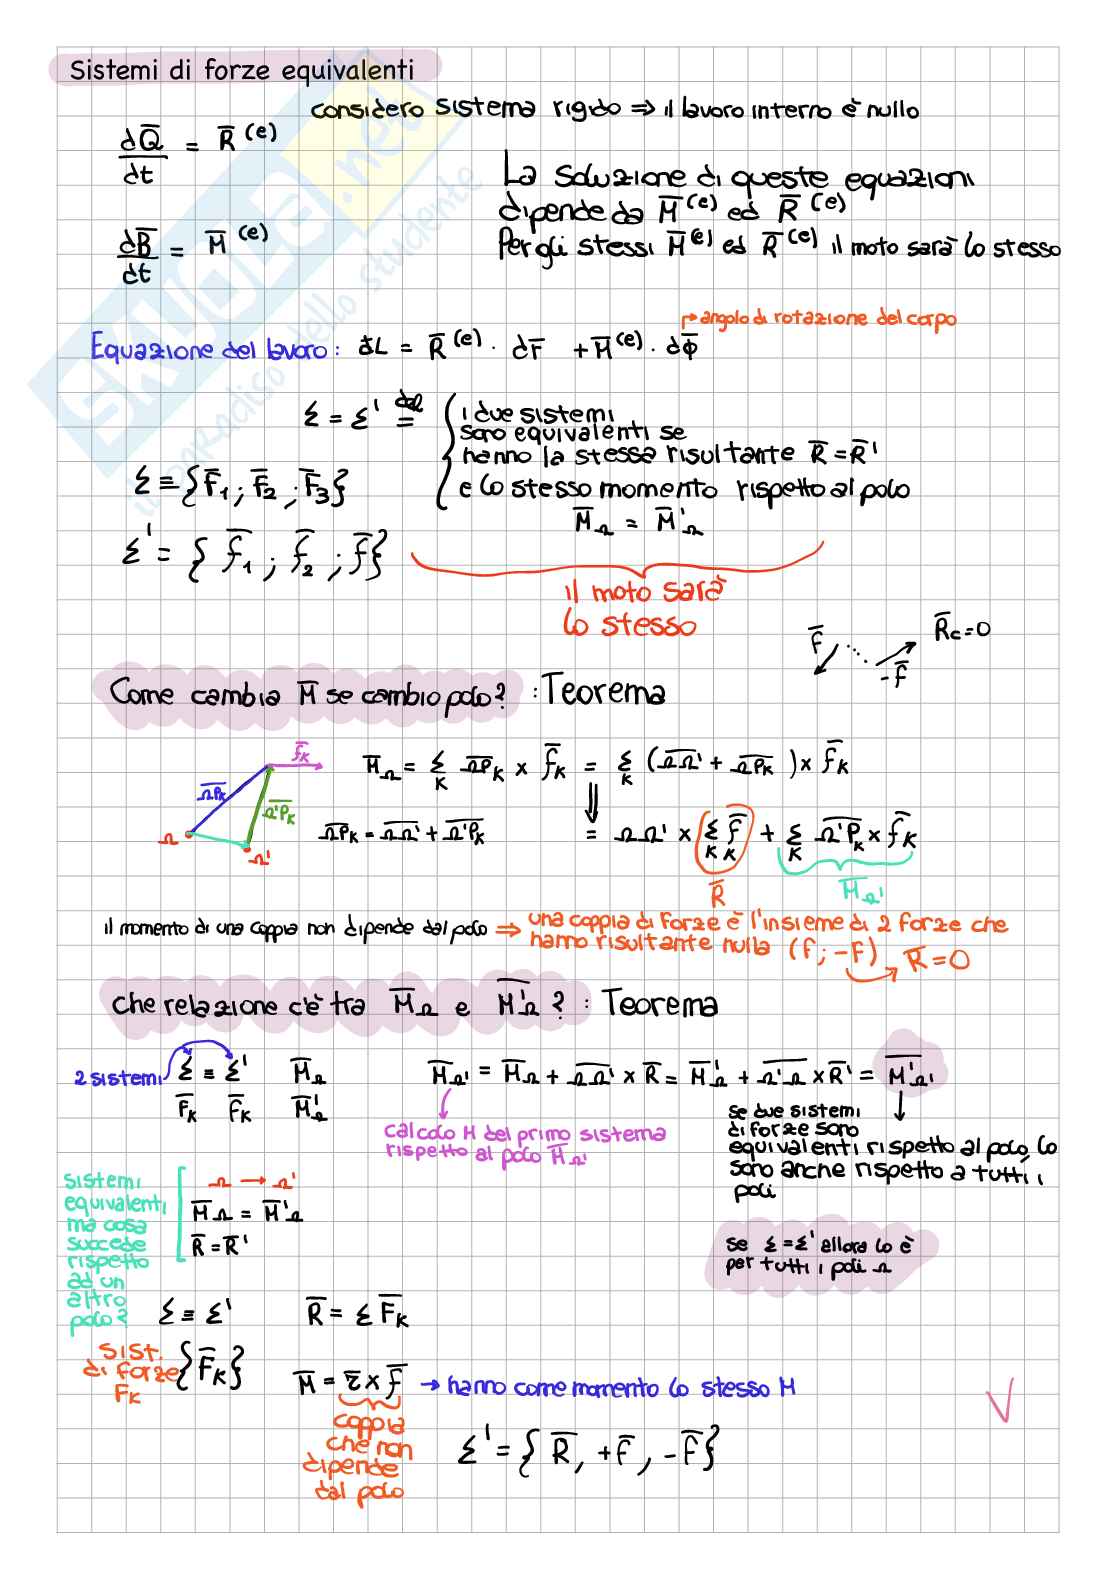 Sistemi di forze equivalenti
considero sistema rigido ⇒ il lavoro interno è nullo
dQ̅/dt = R̅ (e)
La soluzione di queste equazioni
dipende da M̅ (e) ed R̅ (e)
dB̅/dt = M̅ (e)
Per gli stessi M̅ (e) ed R̅ (e) il moto sarà lo stesso
SKUOLA.net
il paradiso dello studente
↱ angolo di rotazione del corpo
Equazione del lavoro: đL = R̅ (e) · dr̅ + M̅ (e) · dΦ̅
Σ = Σ' def =
i due sistemi
sono equivalenti se
hanno la stessa risultante R̅ = R̅'
Σ ≡ {F̅1 ; F̅2 ; F̅3}
e lo stesso momento rispetto al polo
M̅Ω = M̅'Ω
Σ' = { f̅1 ; f̅2 ; f̅}
il moto sarà
lo stesso
f̅ -f̅ R̅c = 0
Come cambia M̅ se cambio polo? : Teorema
f̅K
ΩPK Ω'PK
Ω Ω'
M̅Ω = Σ K ΩPK × f̅K = Σ K (ΩΩ' + ΩPK) × f̅K
ΩPK = ΩΩ' + Ω'PK
= ΩΩ' × Σ K f̅ K + Σ K Ω'PK × f̅K
R̅ M̅Ω'
il momento di una coppia non dipende dal polo ⇒ una coppia di forze è l'insieme di 2 forze che
hanno risultante nulla (f ; -F) R̅ = 0
che relazione c'è tra M̅Ω e M̅'Ω ? : Teorema
2 sistemi Σ ≡ Σ' M̅Ω
F̅K F̅K M̅'Ω
M̅Ω' = M̅Ω + ΩΩ' × R̅ = M̅'Ω + Ω'Ω × R̅' = M̅'Ω'
calcolo M del primo sistema
rispetto al polo M̅Ω'
se due sistemi
di forze sono
equivalenti rispetto al polo lo
sono anche rispetto a tutti i
poli
sistemi
equivalenti
ma cosa
succede
rispetto
ad un
altro
polo?
Ω → Ω'
M̅Ω = M̅'Ω
R̅ = R̅'
se Σ = Σ' allora lo è
per tutti i poli Ω
Σ ≡ Σ' R̅ = Σ F̅K
sist.
di forze
FK
{F̅K}
M̅ = r̅ × f̅ → hanno come momento lo stesso M
coppia
che non
dipende
dal polo
Σ' = { R̅, +f̅, -F̅}